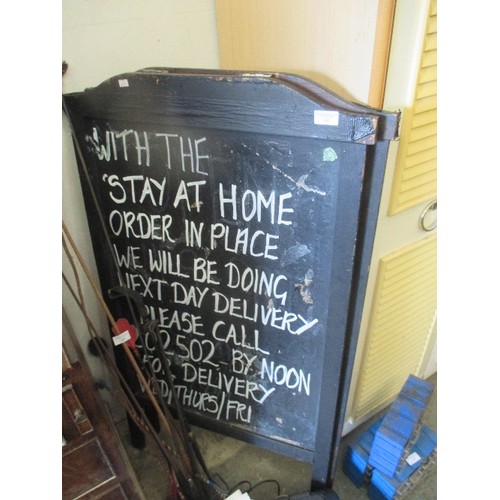 WITH THE
'STAY AT HOME
ORDER IN PLACE
WE WILL BE DOING
NEXT DAY DELIVERY
PLEASE CALL
202 502 BY NOON
FOR DELIVERY
WED/THURS/FRI